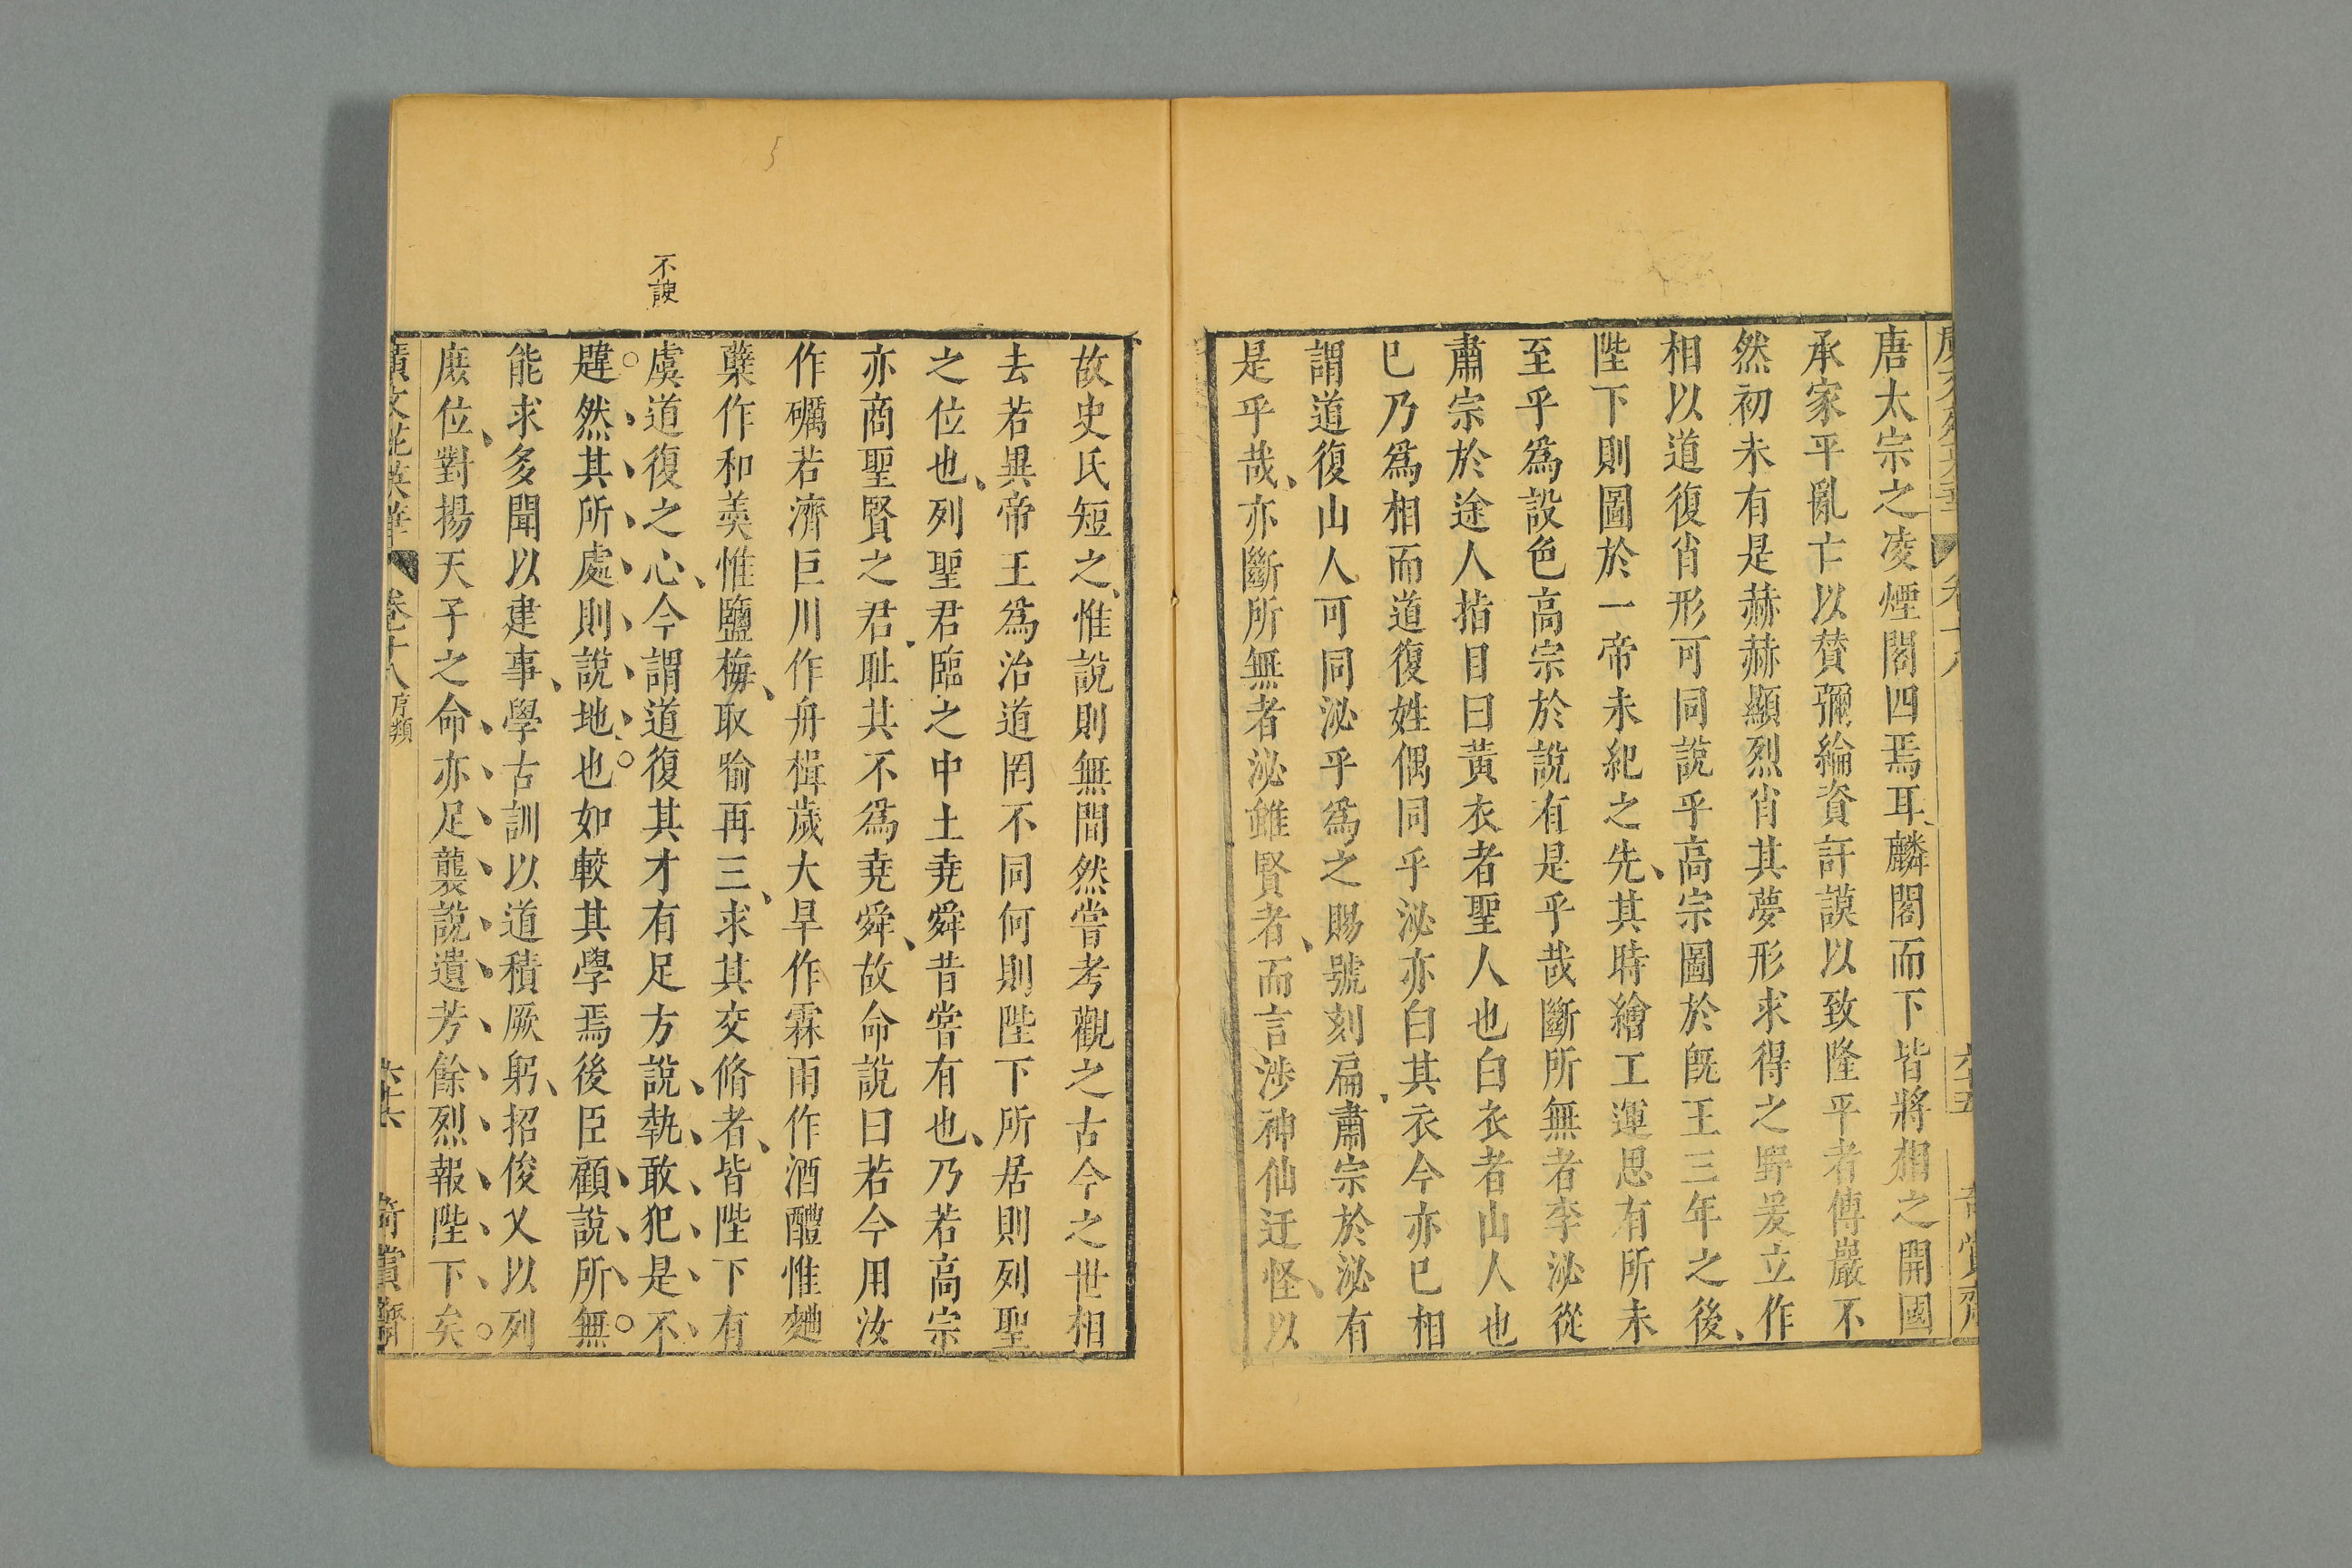 唐太宗之凌煙閣四焉耳麟閣而下皆將相之開國
承家平亂亡以賛彌綸資訏謨以致隆平者傅巖不
然初未有是赫赫顯烈肖其夢形求得之野爰立作
相以道復肖形可同說乎高宗圖於旣王三年之後
陛下則圖於一帝未紀之先其時繪工運思有所未
至乎爲設色高宗於說有是乎哉斷所無者李泌從
肅宗於途人指目曰黃衣者聖人也白衣者山人也
已乃爲相而道復姓偶同乎泌亦白其衣今亦已相
謂道復山人可同泌乎爲之賜號刻扁肅宗於泌有
是乎哉亦斷所無者泌雖賢者而言涉神仙迂怪以
故史氏短之惟說則無間然嘗考觀之古今之世相
去若異帝王爲治道罔不同何則陛下所居則列聖
之位也列聖君臨之中土堯舜昔嘗有也乃若高宗
亦商聖賢之君耻其不爲堯舜故命說曰若今用汝
作礪若濟巨川作舟楫歲大旱作霖雨作酒醴惟麯
櫱作和羹惟鹽梅取喻再三求其交脩者皆陛下有
虞道復之心今謂道復其才有足方說執敢犯是不
韙然其所處則說地也如較其學焉後臣顧說所無
能求多聞以建事學古訓以道積厥躬招俊乂以列
庶位對揚天子之命亦足襲說遺芳餘烈報陛下矣
不諛
廣文苑英華 卷十八 序類 六十六 奇賞齋